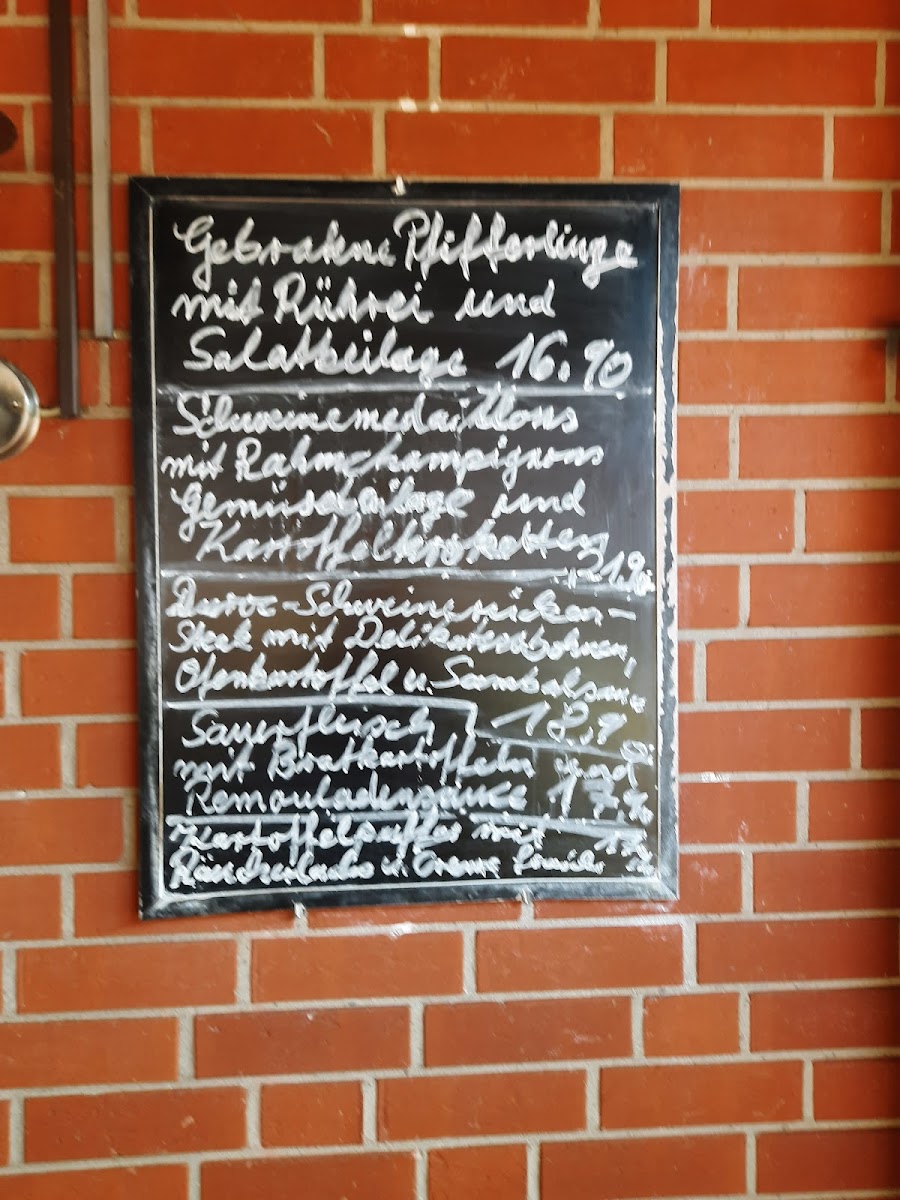 Gebratene Pfifferlinge
mit Rührei und
Salatbeilage 16.90
Schweinemedaillons
mit Rahmchampignons
Gemüsebeilage und
Kartoffelkroketten
21.90
Duroc-Schweinerücken-
steak mit Delikatessbohnen,
Ofenkartoffel u. Sambalsauce
18,90
Sauerfleisch
mit Bratkartoffeln und
Remouladensauce 17,90
Kartoffelpuffer mit
Räucherlachs u. Creme fraiche